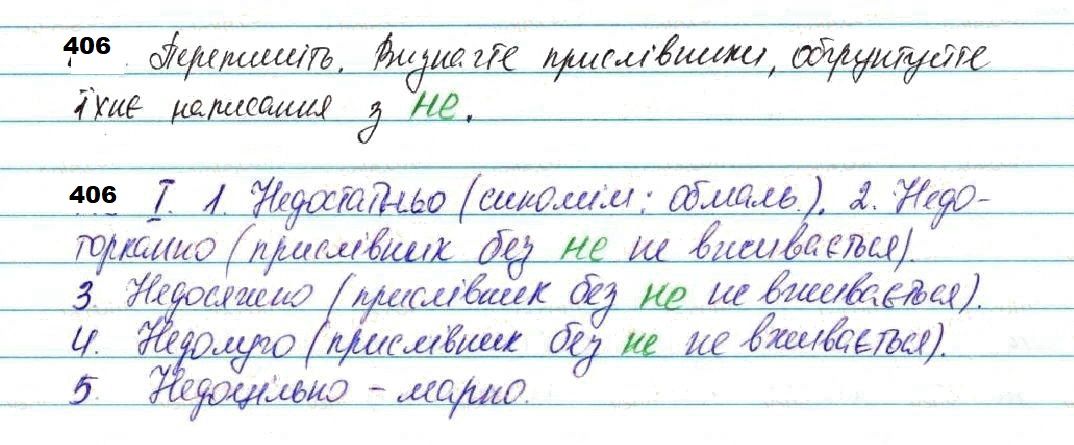 406 Перепишіть. Визначте прислівники, обґрунтуйте
їхнє написання з не.
406 I. 1. Недостатньо (синонім: обмаль). 2. Недо-
торканно (прислівник без не не вживається).
3. Недосяжно (прислівник без не не вживається).
4. Недолуго (прислівник без не не вживається).
5. Недоцільно – марно.